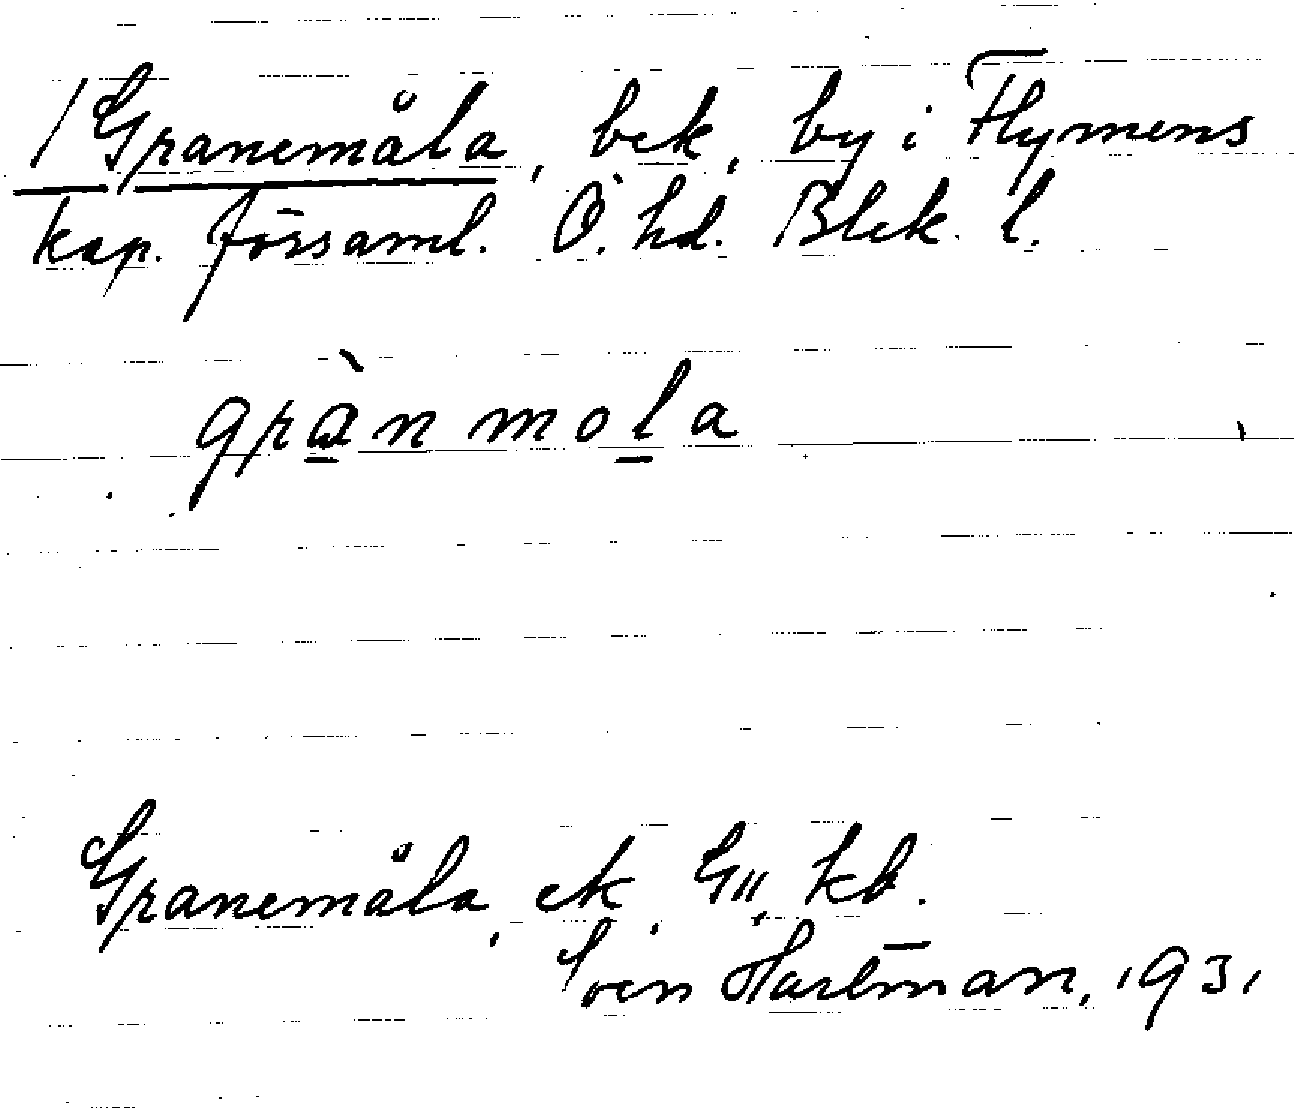 1 Granemåla, bek, by i Flymens
kap. församl. Ö. hd. Blek. l.
grànmola
Granemåla, ek, G11, kb.
Sven Hartman, 1931